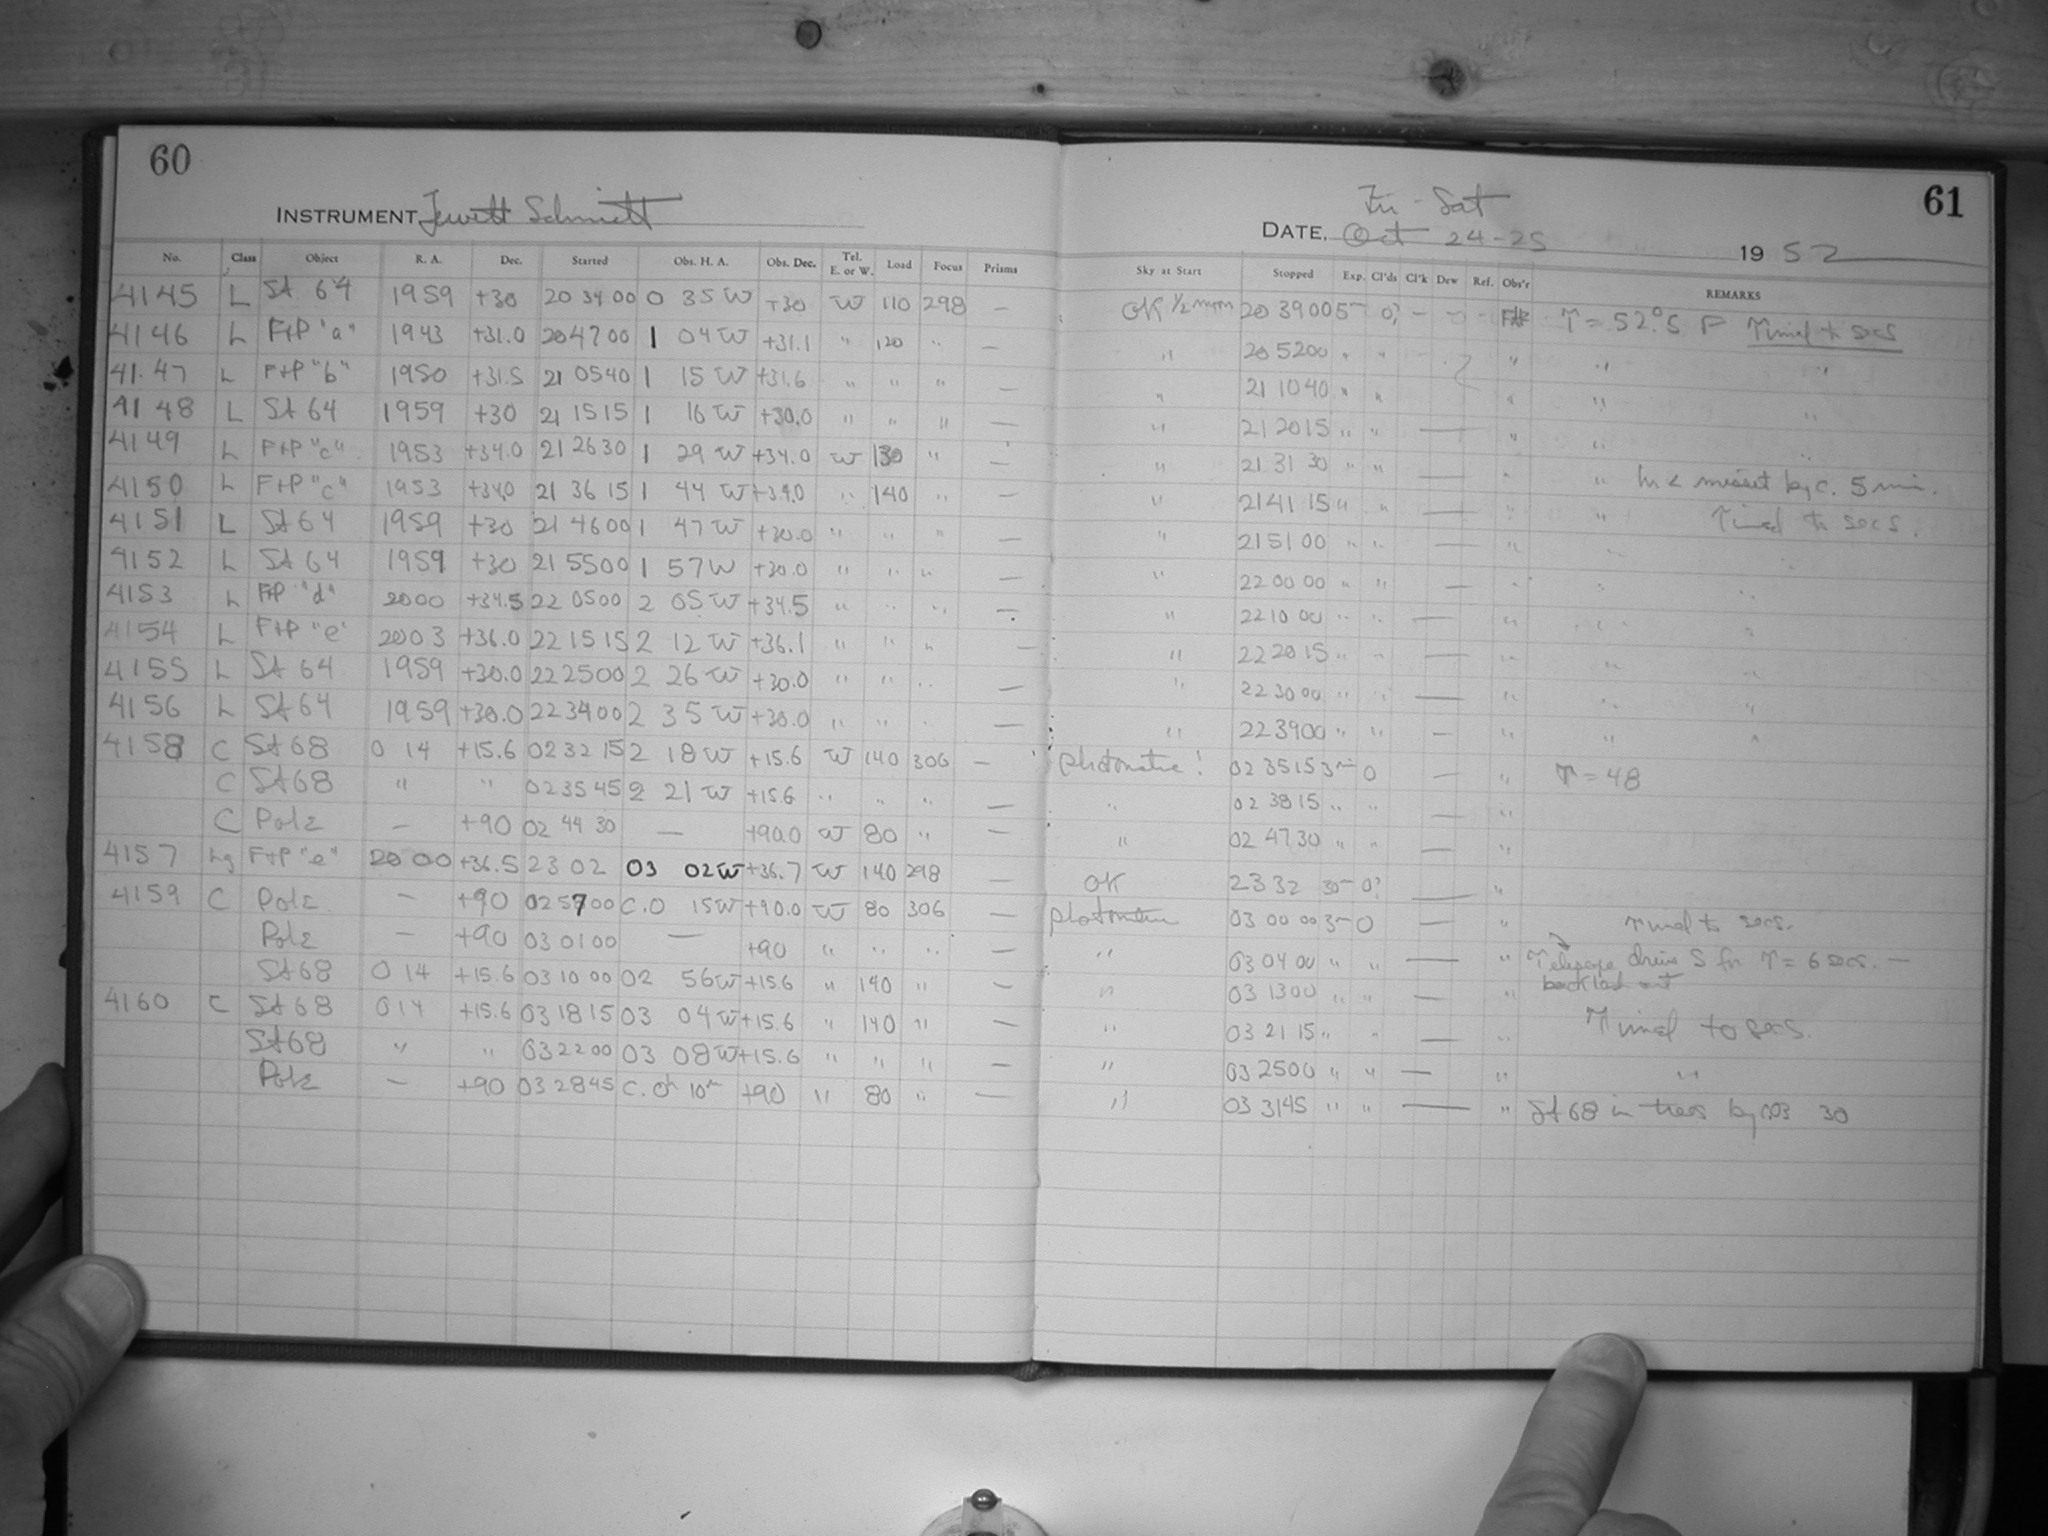 60
INSTRUMENT, Jewett Schmidt
Fri - Sat
61
DATE, Oct 24-25 1952
No. Class Object R. A. Dec. Started Obs. H. A. Obs. Dec. Tel. E. or W. Load Focus Prisms Sky at Start Stopped Exp. Cl'ds Cl'k Dew Ref. Obs'r REMARKS
4145 L SA 64 1959 +30 20 34 00 0 35 W +30 W 110 298 — OK 1/2 moon 20 39 00 5m 0? — T = 52.°5 F Timed to secs
4146 L F+P "a" 1943 +31.0 20 47 00 1 04 W +31.1 " 120 " — " 20 52 00 " " " " "
4147 L F+P "b" 1950 +31.5 21 05 40 1 15 W +31.6 " " " — " 21 10 40 " " " " "
4148 L SA 64 1959 +30 21 15 15 1 16 W +30.0 " " " — " 21 20 15 " " — " " "
4149 L F+P "c" 1953 +34.0 21 26 30 1 29 W +34.0 W 130 " — " 21 31 30 " " — " " hr < misset by c. 5 min.
4150 L F+P "c" 1953 +34.0 21 36 15 1 44 W +34.0 " 140 " — " 21 41 15 " " — " " Timed to secs.
4151 L SA 64 1959 +30 21 46 00 1 47 W +30.0 " " " — " 21 51 00 " " — " " "
4152 L SA 64 1959 +30 21 55 00 1 57 W +30.0 " " " — " 22 00 00 " " — " " "
4153 L F+P "d" 2000 +34.5 22 05 00 2 05 W +34.5 " " " — " 22 10 00 " " — " " "
4154 L F+P "e" 2003 +36.0 22 15 15 2 12 W +36.1 " " " — " 22 20 15 " " — " " "
4155 L SA 64 1959 +30.0 22 25 00 2 26 W +30.0 " " " — " 22 30 00 " " — " " "
4156 L SA 64 1959 +30.0 22 34 00 2 35 W +30.0 " " " — " 22 39 00 " " — " " "
4158 C SA 68 0 14 +15.6 02 32 15 2 18 W +15.6 W 140 306 — photometric! 02 35 15 3m 0 — " T = 48
C SA 68 " " 02 35 45 2 21 W +15.6 " " " — " 02 38 15 " " — "
C Pole — +90 02 44 30 — +90.0 W 80 " — " 02 47 30 " " — "
4157 Lg F+P "e" 20 00 +36.5 23 02 03 02 W +36.7 W 140 298 — OK 23 32 30m 0? — "
4159 C Pole — +90 02 57 00 C.0 15 W +90.0 W 80 306 — photometric 03 00 00 3m 0 — " Timed to secs.
Pole — +90 03 01 00 — +90 " " " — " 03 04 00 " " — " Telescope drive S for T = 6 secs. — backlash out
SA 68 0 14 +15.6 03 10 00 02 56 W +15.6 " 140 " — " 03 13 00 " " — "
4160 C SA 68 0 14 +15.6 03 18 15 03 04 W +15.6 " 140 " — " 03 21 15 " " — " Timed to secs.
SA 68 " " 03 22 00 03 08 W +15.6 " " " — " 03 25 00 " " — " "
Pole — +90 03 28 45 C. 0h 10m +90 " 80 " — " 03 31 45 " " — " SA 68 in trees by 03 30